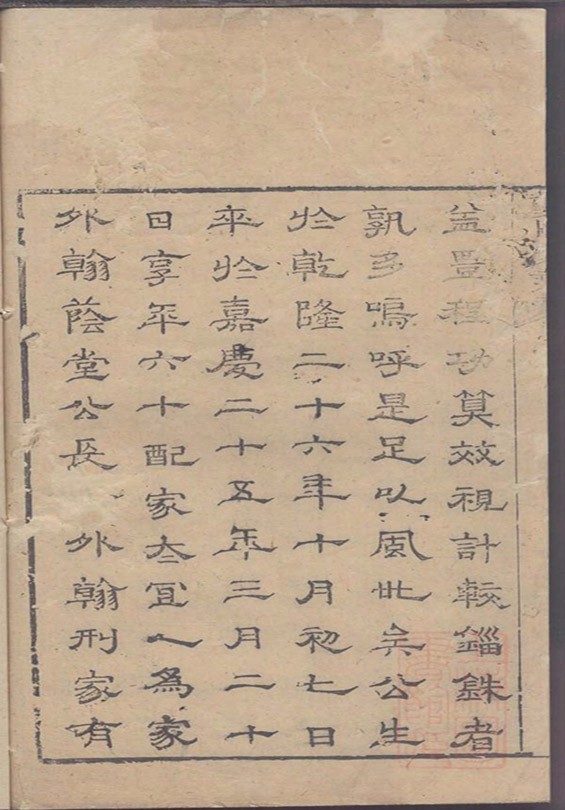 益豊程功算效視計較錙銖者
孰多嗚呼是足以風世矣公生
於乾隆二十六年十月初七日
卒於嘉慶二十五年三月二十
日享年六十配家太宜人為家
外翰蔭堂公長 外翰刑家有